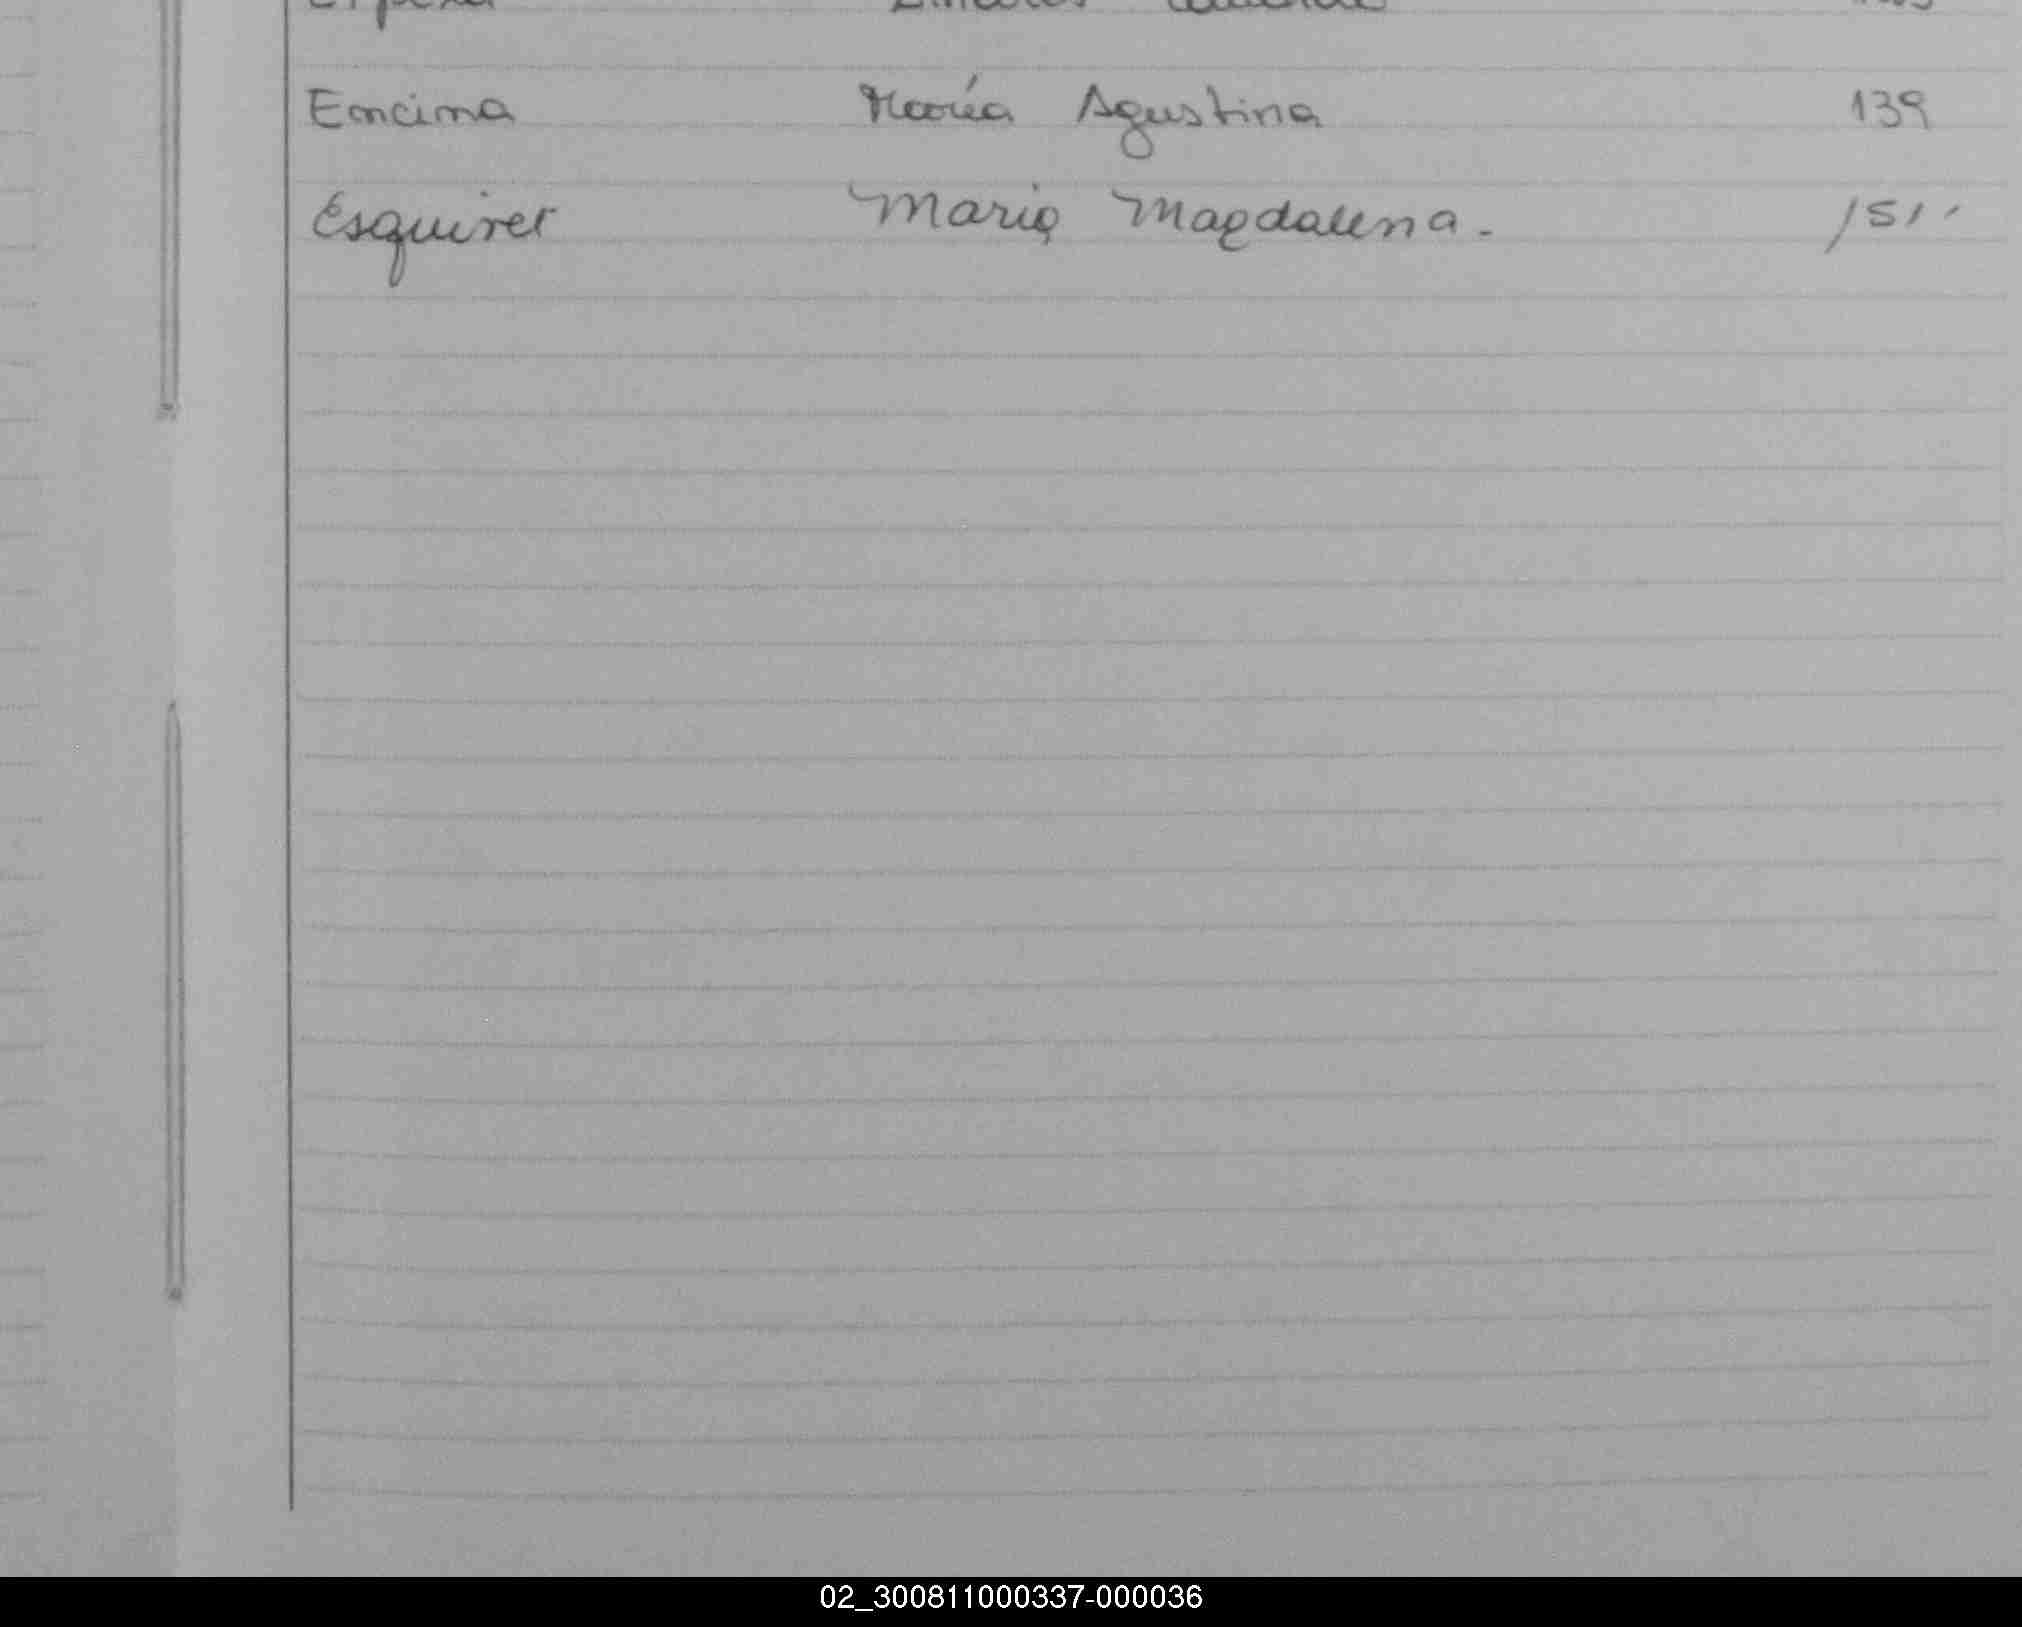 Encina María Agustina 139
Esquivel Maria Magdalena. 151
02_300811000337-000036